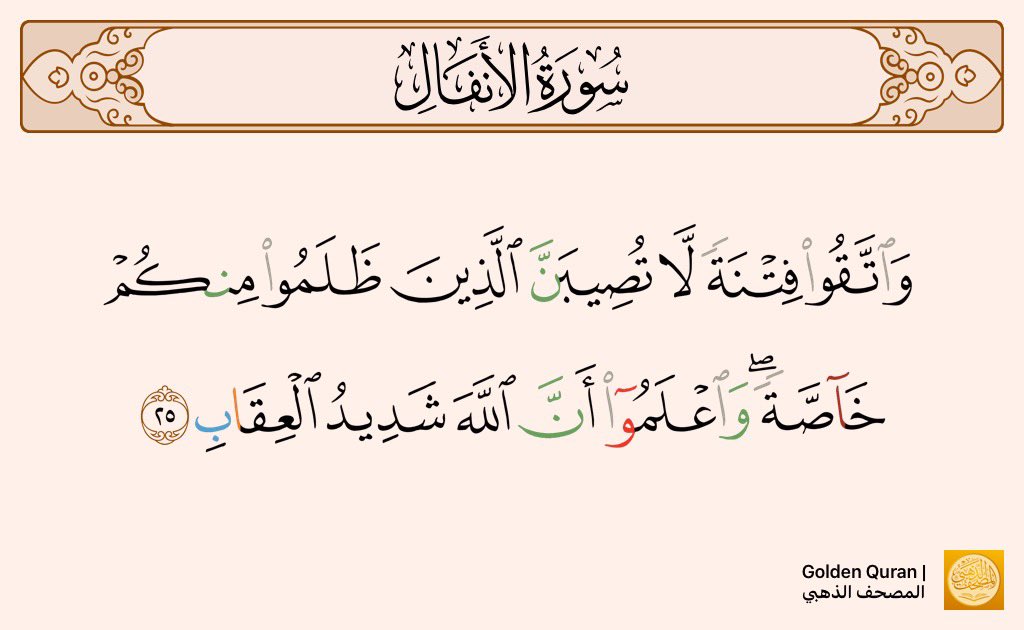 سُورَةُ الأَنفَالِ
وَٱتَّقُوا۟ فِتْنَةً لَّا تُصِيبَنَّ ٱلَّذِينَ ظَلَمُوا۟ مِنكُمْ
خَآصَّةً ۖ وَٱعْلَمُوٓا۟ أَنَّ ٱللَّهَ شَدِيدُ ٱلْعِقَابِ ٢٥
Golden Quran |
المصحف الذهبي